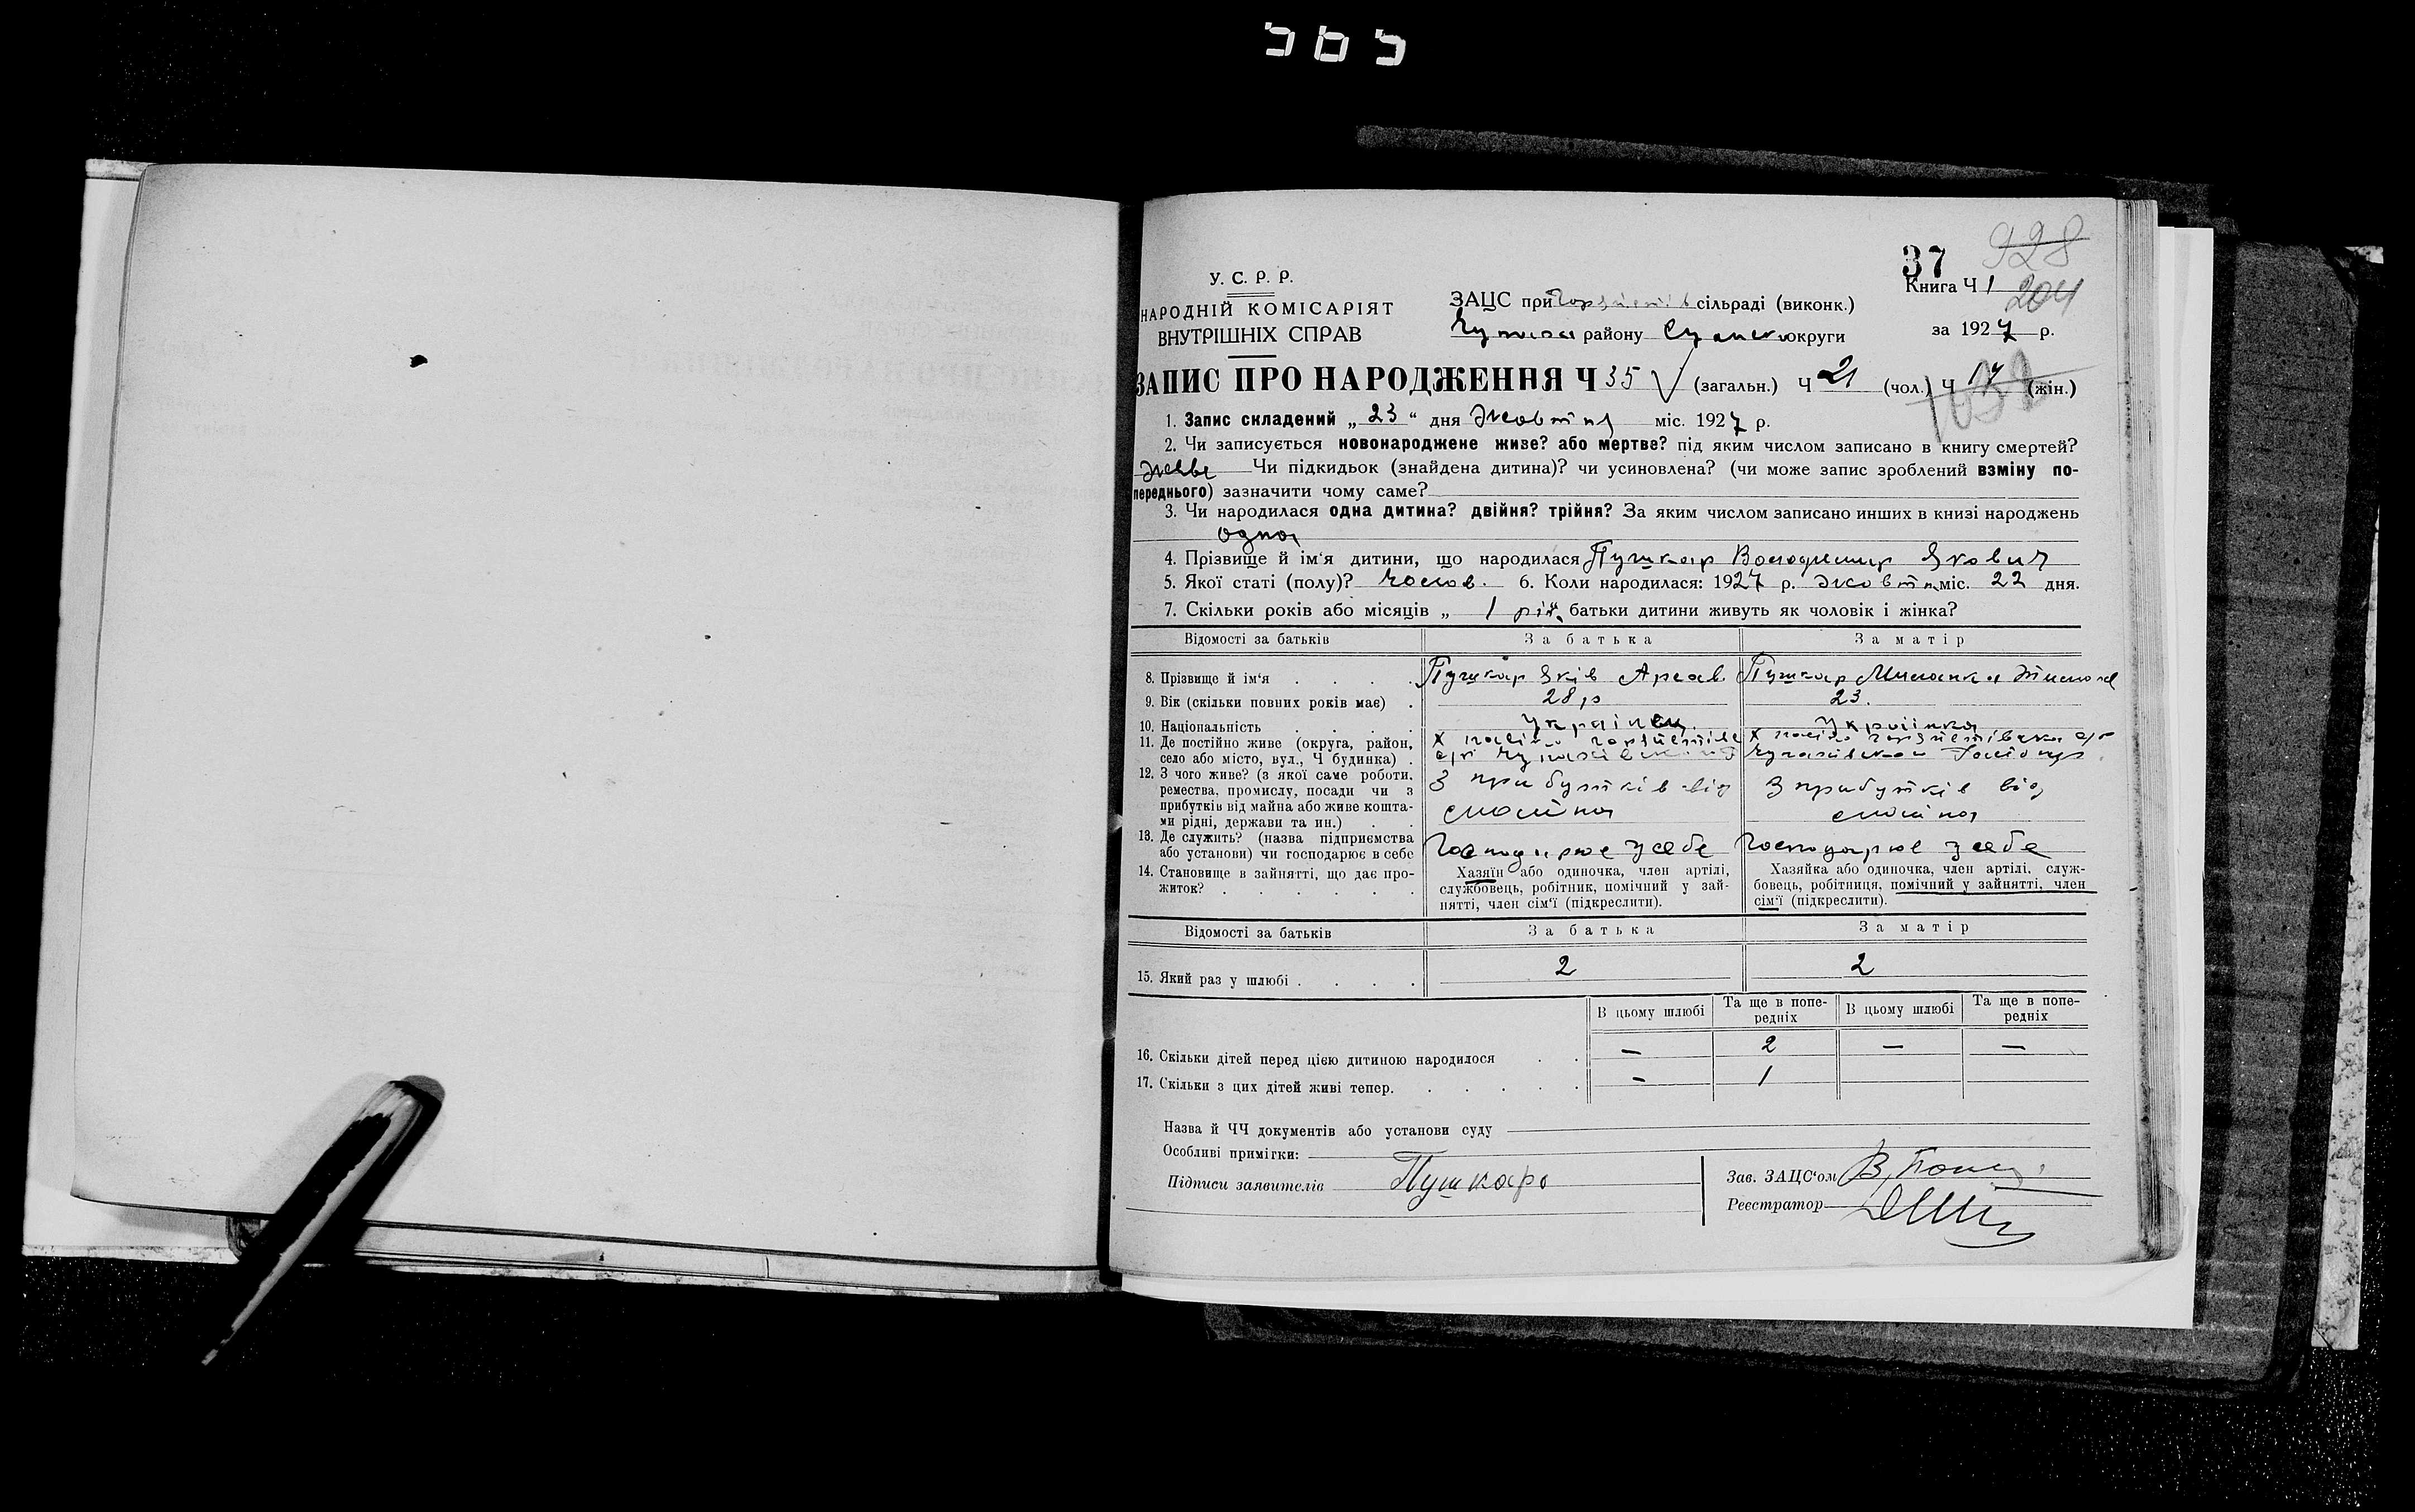 37
928
У. С. Р. Р.
НАРОДНІЙ КОМІСАРІЯТ
ВНУТРІШНІХ СПРАВ
ЗАЦС при сільраді (виконк.)
району округи
Книга Ч 1
204
за 1927 р.
ЗАПИС ПРО НАРОДЖЕННЯ Ч 35 (загальн.) Ч 21 (чол.) Ч 14 (жін.)
1. Запис складений „ 23 “ дня Жовтня міс. 1927 р.
2. Чи записується новонароджене живе? або мертве? під яким числом записано в книгу смертей?
живе Чи підкидьок (знайдена дитина)? чи усиновлена? (чи може запис зроблений взміну по-
переднього) зазначити чому саме?
3. Чи народилася одна дитина? двійня? трійня? За яким числом записано инших в книзі народжень
одна
4. Прізвище й ім‘я дитини, що народилася Пушкар Володимир Якович
5. Якої статі (полу)? чолов. 6. Коли народилася: 1927 р. жовтн міс. 22 дня.
7. Скільки років або місяців „ 1 рік батьки дитини живуть як чоловік і жінка?
Відомості за батьків За батька За матір
8. Прізвище й ім‘я . . . . Пушкар Яків Пушкар
9. Вік (скільки повних років має) . 28 р 23.
10. Національність . . . . Українец Українка
11. Де постійно живе (округа, район,
село або місто, вул., Ч будинка) .
12. З чого живе? (з якої саме роботи,
ремества, промислу, посади чи з
прибутків від майна або живе кошта-
ми рідні, держави та ин.) . .
З прибутків від З прибутків від
13. Де служить? (назва підприємства
або установи) чи господарює в себе
Господарює у себе Господарює у себе
14. Становище в зайнятті, що дає про-
житок? . . . . . .
Хазяїн або одиночка, член артілі,
службовець, робітник, помічний у зай-
нятті, член сім‘ї (підкреслити).
Хазяйка або одиночка, член артілі, служ-
бовець, робітниця, помічний у зайнятті, член
сім‘ї (підкреслити).
Відомості за батьків За батька За матір
15. Який раз у шлюбі . . . . 2 2
В цьому шлюбі Та ще в попе-
редніх В цьому шлюбі Та ще в попе-
редніх
16. Скільки дітей перед цією дитиною народилося . . — 2 — —
17. Скільки з цих дітей живі тепер. . . . . . - 1
Назва й ЧЧ документів або установи суду
Особливі примітки:
Підписи заявителів Пушкарь
Зав. ЗАЦС‘ом
Реєстратор